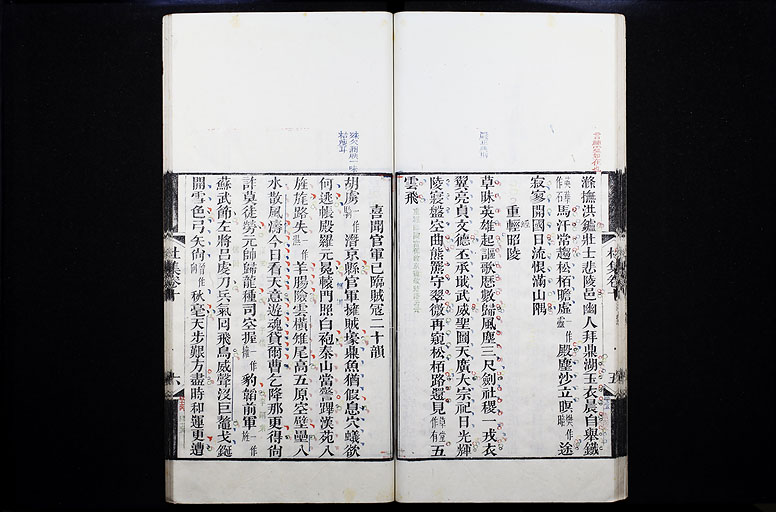 滌撫洪鑪壯士悲陵邑幽人拜鼎湖玉衣晨自舉鐵
英華作石馬汗常趨松栢瞻虛一作靈殿塵沙立暝樊作暗途
寂寥開國日流恨滿山隅
重經昭陵
草昧英雄起謳歌曆數歸風塵三尺劍社稷一戎衣
翼亮貞文德丕承戢武威聖圖天廣大宗祀日光輝
陵寢盤空曲熊羆守翠微再窺松栢路還見草堂作有五
雲飛
喜聞官軍已臨賊寇二十韻
胡虜一作騎潛京縣官軍擁賊壕鼎魚猶假息穴蟻欲
何逃帳殿羅元冕轅門照白袍秦山當警蹕漢苑入
旌旄路失一作濕羊腸險雲橫雉尾高五原空壁壘八
水散風濤今日看天意遊魂貸爾曹乞降那更得尚
詐莫徒勞元帥歸龍種司空握一作擁豹韜前軍一作旌
蘇武節左將呂虔刀兵氣回飛鳥威聲沒巨鼇戈鋋
開雪色弓矢尚晉作向秋毫天步艱方盡時和運更遭
杜集卷十
五
杜集卷十
六